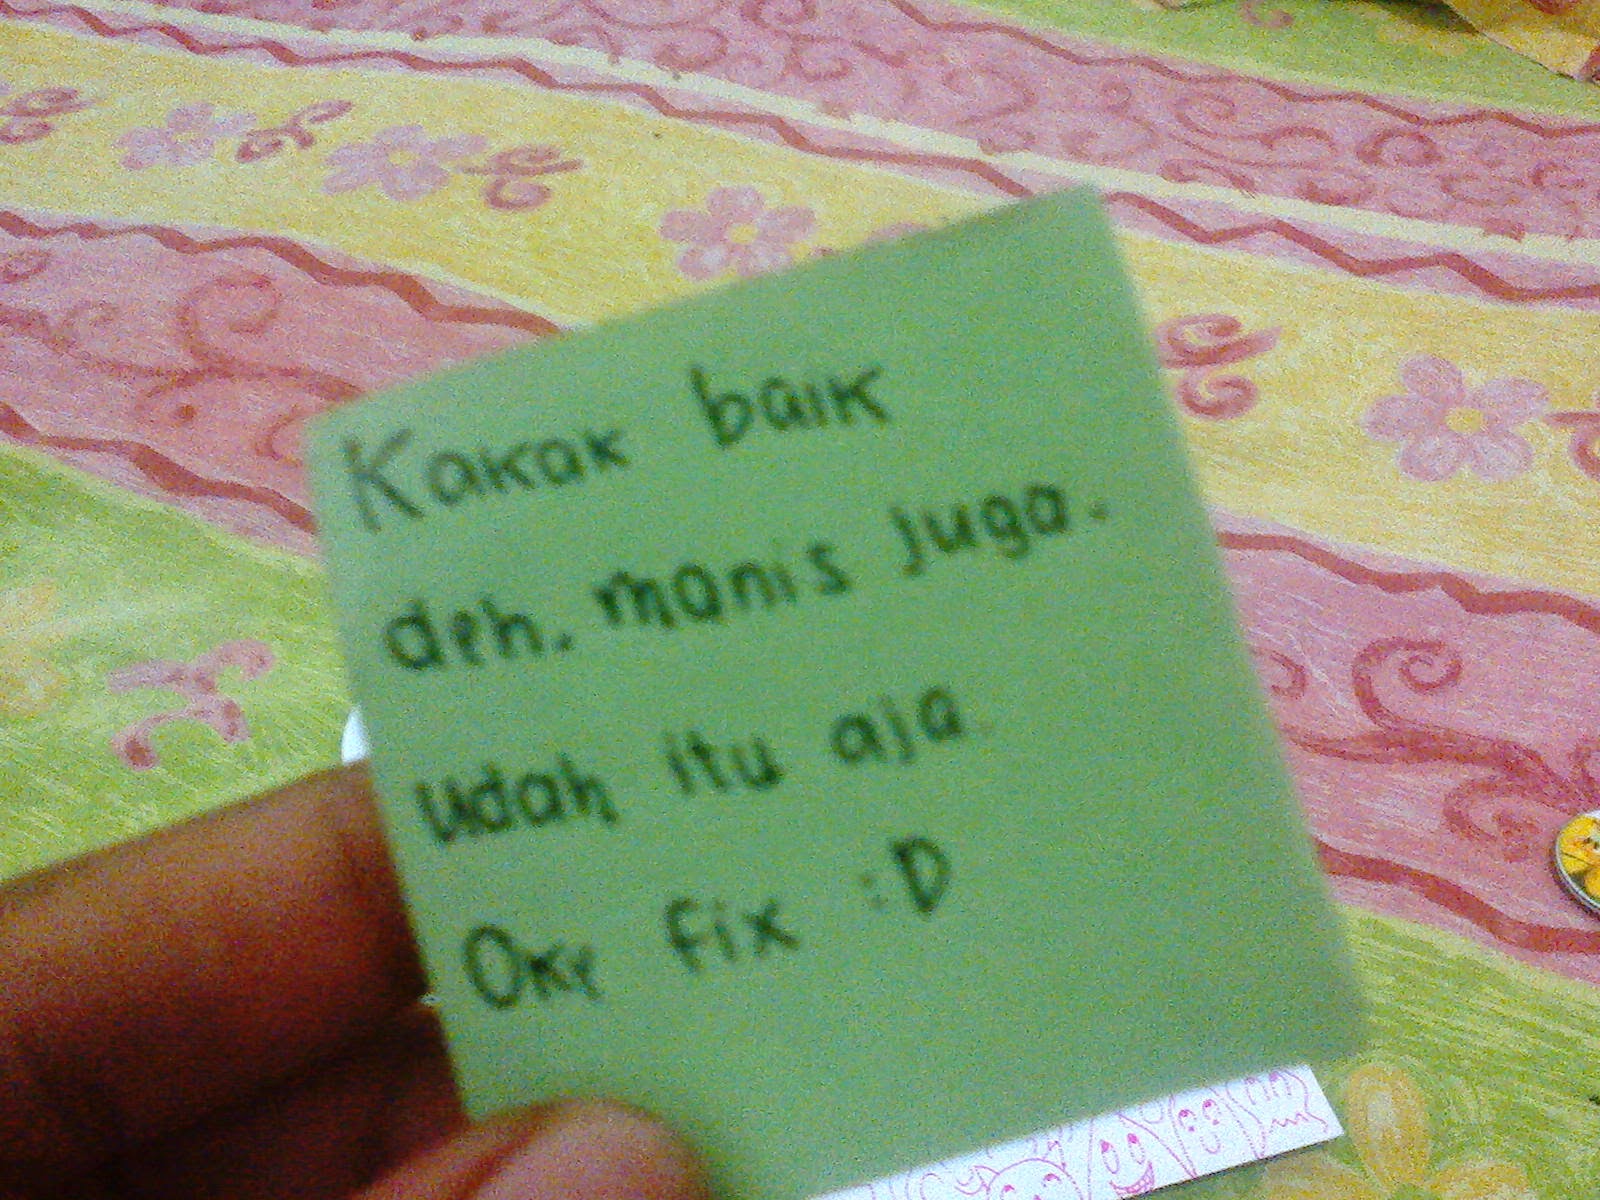 Kakak baik
deh. manis juga.
udah itu aja
Oke fix :D